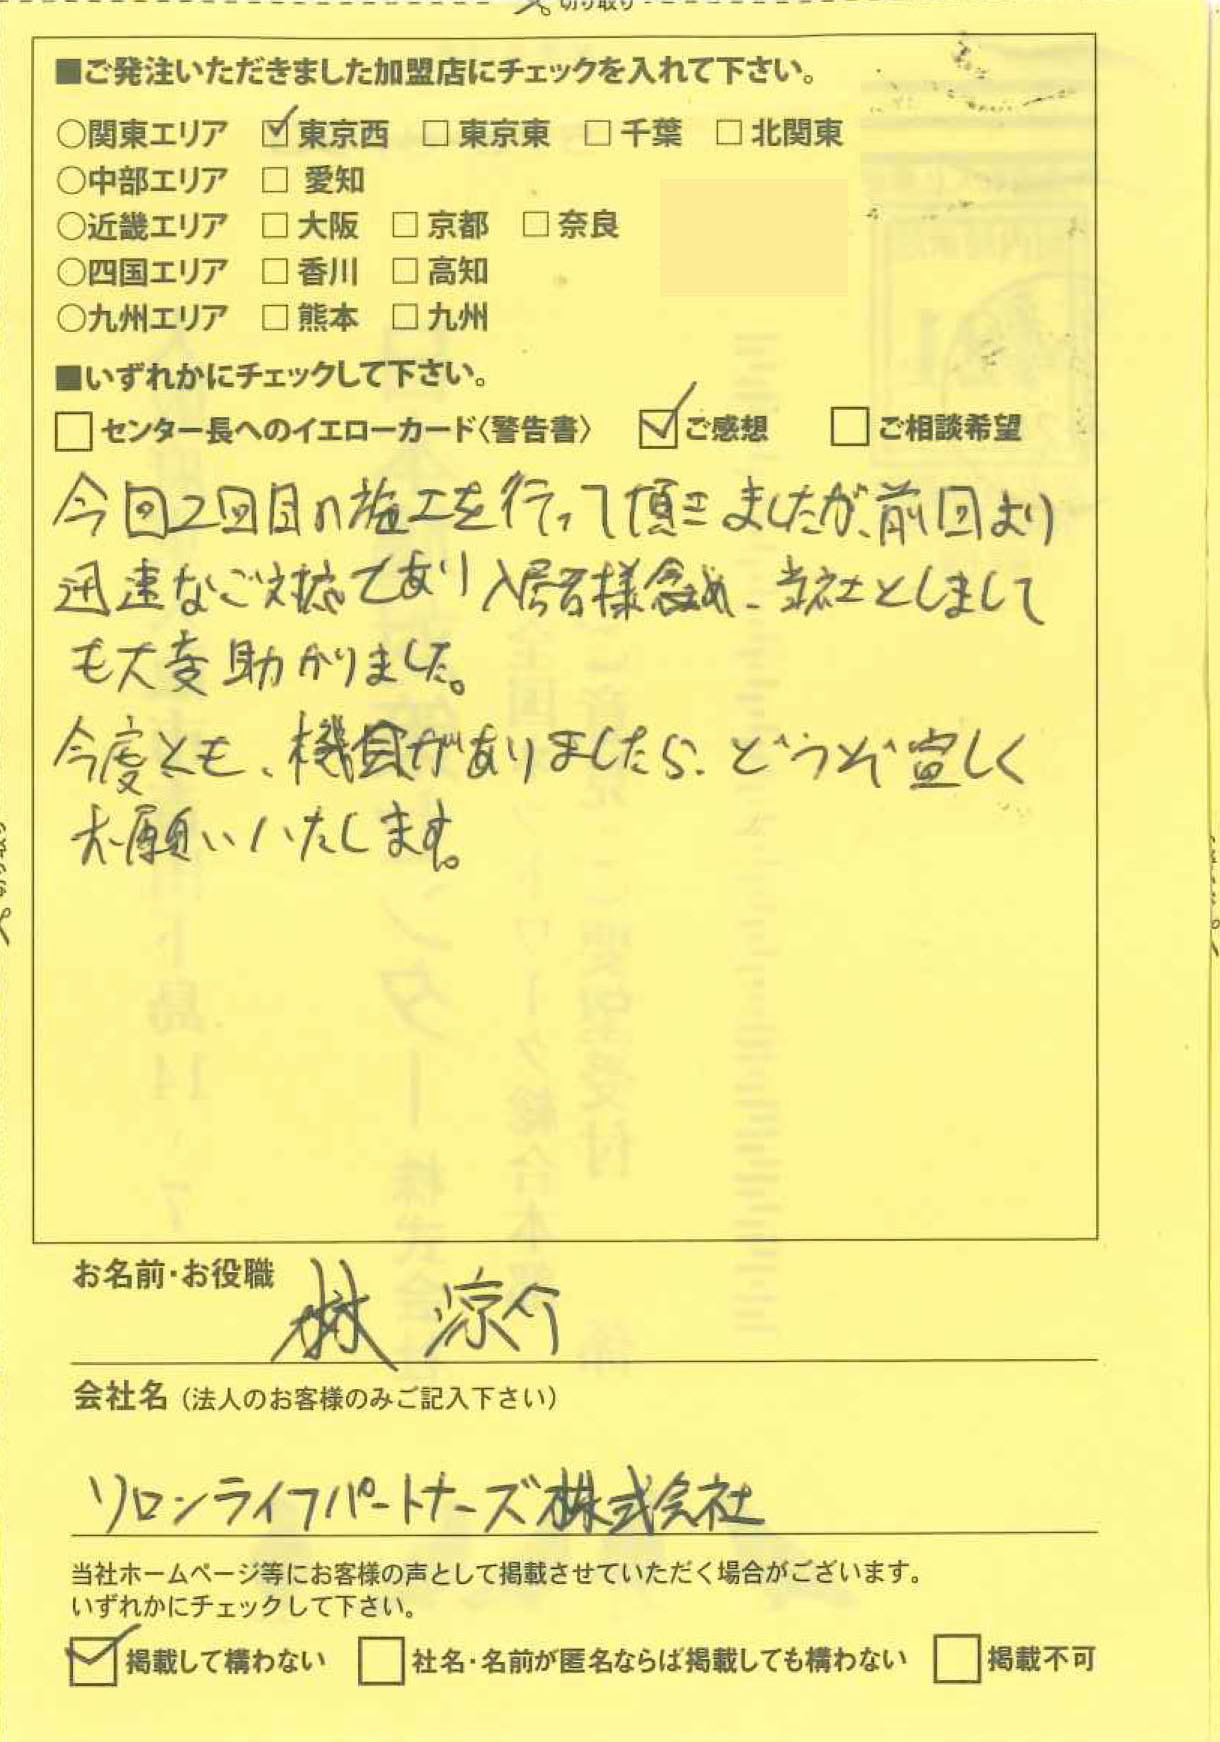 切り取り
■ご発注いただきました加盟店にチェックを入れて下さい。
○関東エリア ☑東京西 □東京東 □千葉 □北関東
○中部エリア □愛知
○近畿エリア □大阪 □京都 □奈良
○四国エリア □香川 □高知
○九州エリア □熊本 □九州
■いずれかにチェックして下さい。
□センター長へのイエローカード〈警告書〉 ☑ご感想 □ご相談希望
今回2回目の施工を行って頂きましたが、前回より
迅速なご対応であり入居者様含め、当社としまして
も大変助かりました。
今度とも、機会がありましたら、どうぞ宜しく
お願いいたします。
お名前・お役職
林 涼介
会社名（法人のお客様のみご記入下さい）
ソロンライフパートナーズ株式会社
当社ホームページ等にお客様の声として掲載させていただく場合がございます。
いずれかにチェックして下さい。
☑掲載して構わない □社名・名前が匿名ならば掲載しても構わない □掲載不可